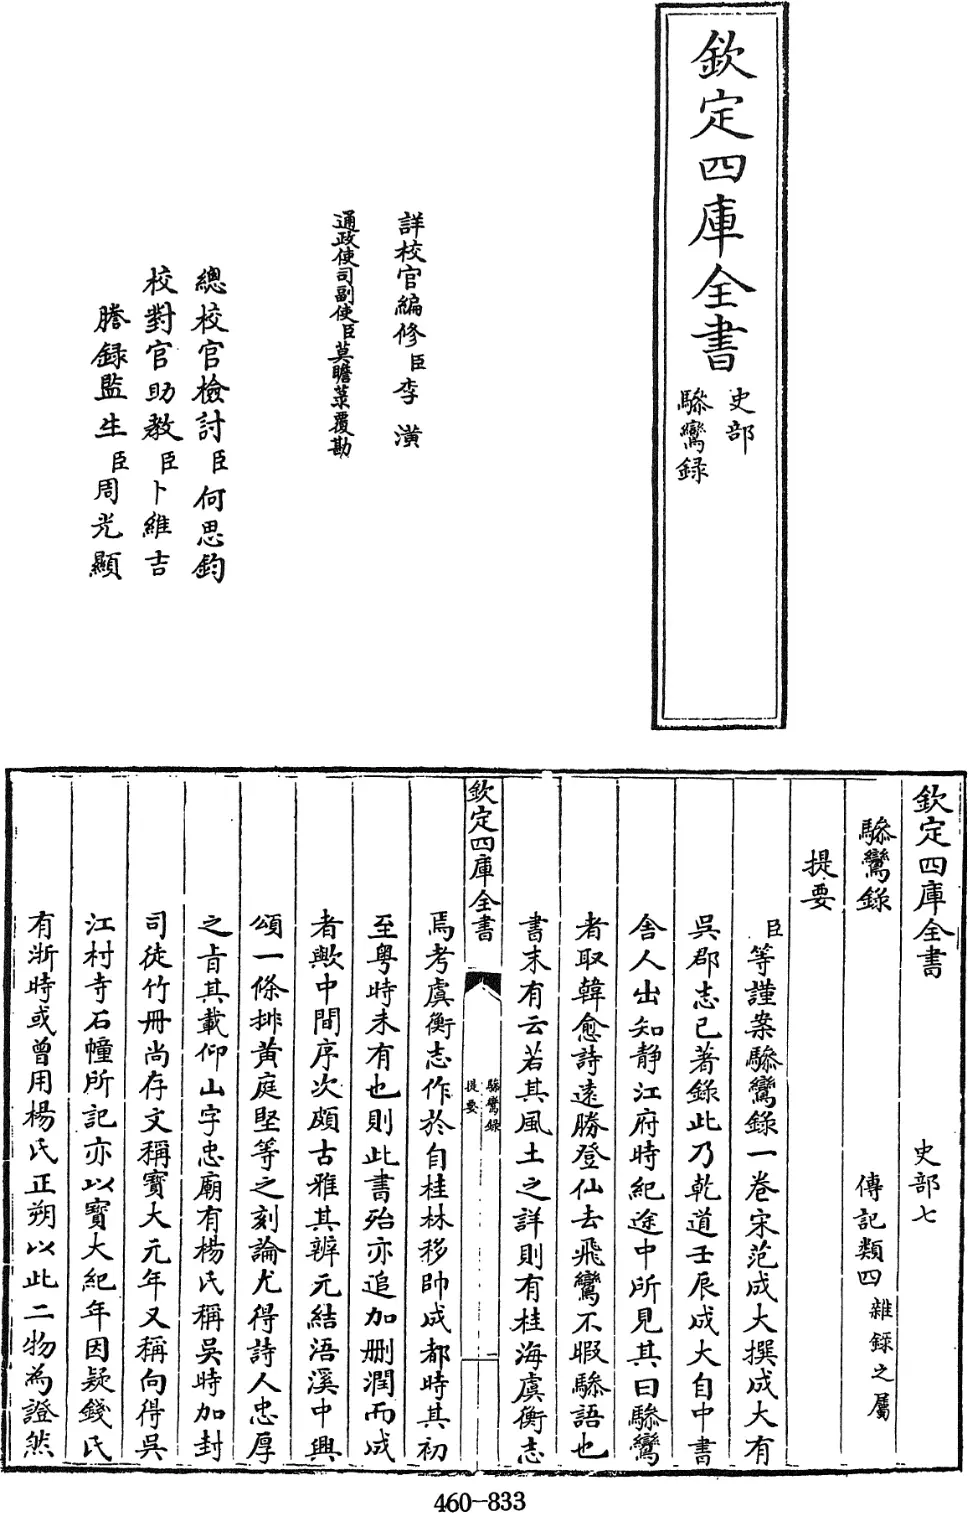 欽定四庫全書
史部
驂鸞錄
詳校官編修臣李潢
通政使司副使臣莫瞻菉覆勘
總校官檢討臣何思鈞
校對官助教臣卜維吉
謄錄監生臣周光顯
欽定四庫全書 史部七
驂鸞錄 傳記類四 雜錄之屬
提要
臣等謹案驂鸞錄一卷宋范成大撰成大有
吳郡志已著錄此乃乾道壬辰成大自中書
舍人出知靜江府時紀途中所見其曰驂鸞
者取韓愈詩遠勝登仙去飛鸞不暇驂語也
書末有云若其風土之詳則有桂海虞衡志
欽定四庫全書
驂鸞錄
提要
一
焉考虞衡志作於自桂林移帥成都時其初
至粤時未有也則此書殆亦追加刪潤而成
者歟中間序次頗古雅其辨元結浯溪中興
頌一條排黄庭堅等之刻論尤得詩人忠厚
之旨其載仰山字忠廟有楊氏稱吳時加封
司徒竹冊尚存文稱寳大元年又稱向得吳
江村寺石幢所記亦以寳大紀年因疑錢氏
有浙時或曾用楊氏正朔以此二物為證然
460-833